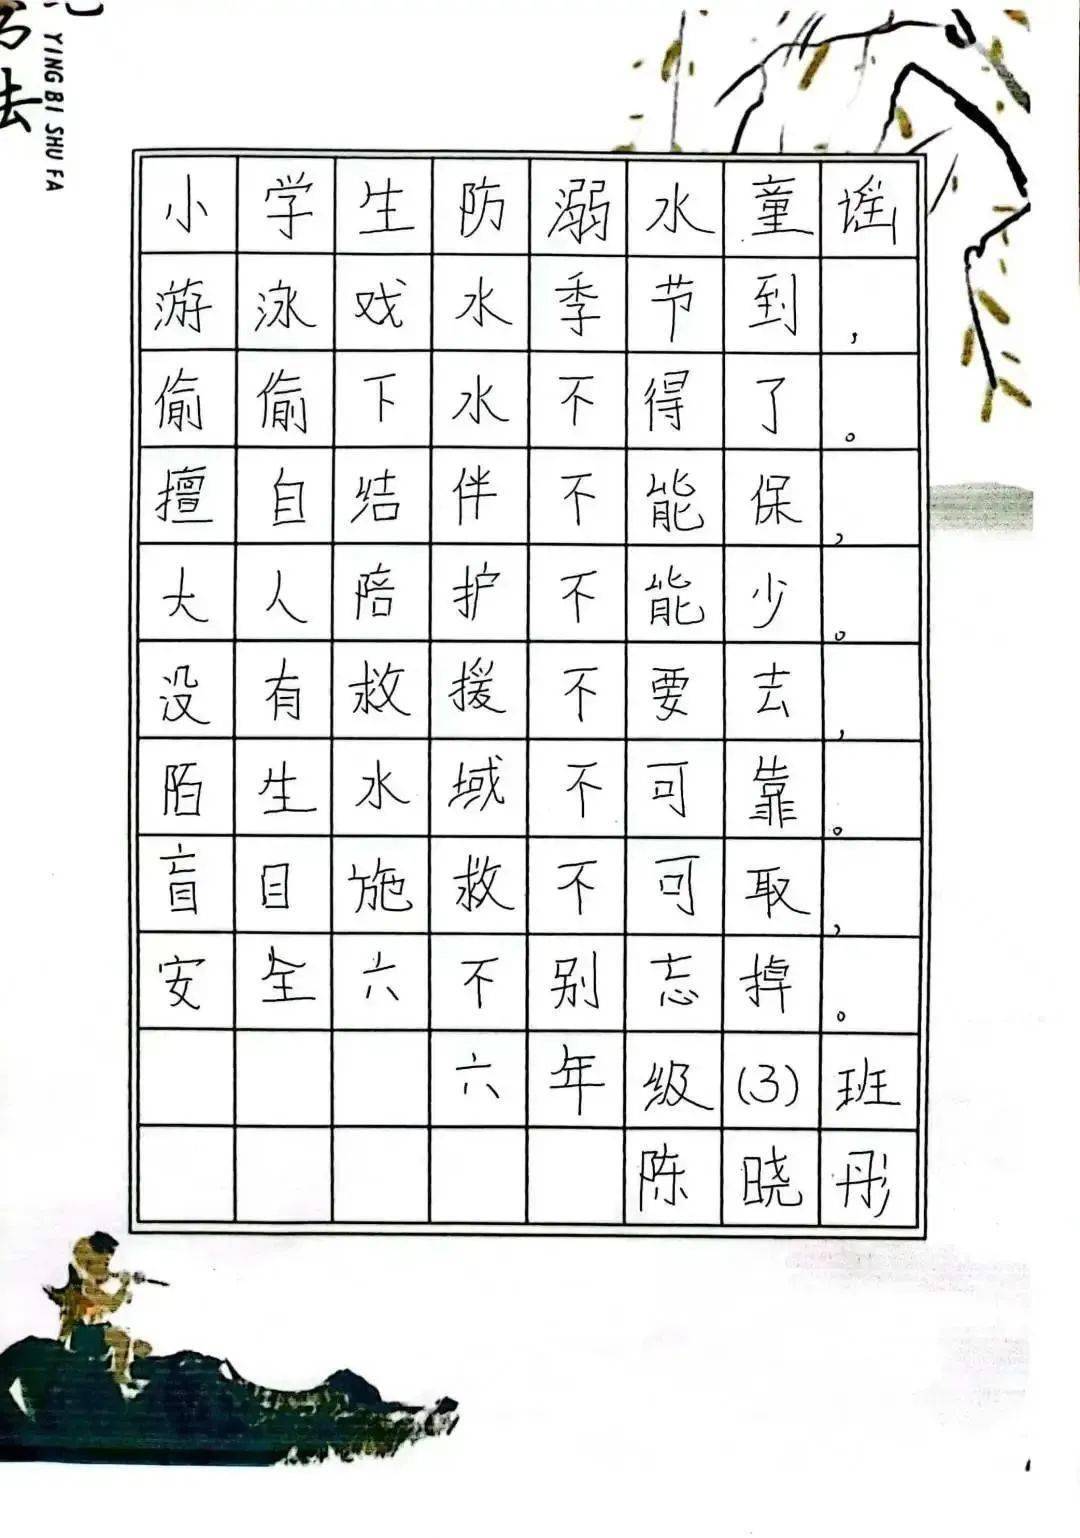 书法
YING BI SHU FA
小学生防溺水童谣
游泳戏水季节到，
偷偷下水不得了。
擅自结伴不能保，
大人陪护不能少。
没有救援不要去，
陌生水域不可靠。
盲目施救不可取，
安全六不别忘掉。
六年级(3)班
陈晓彤